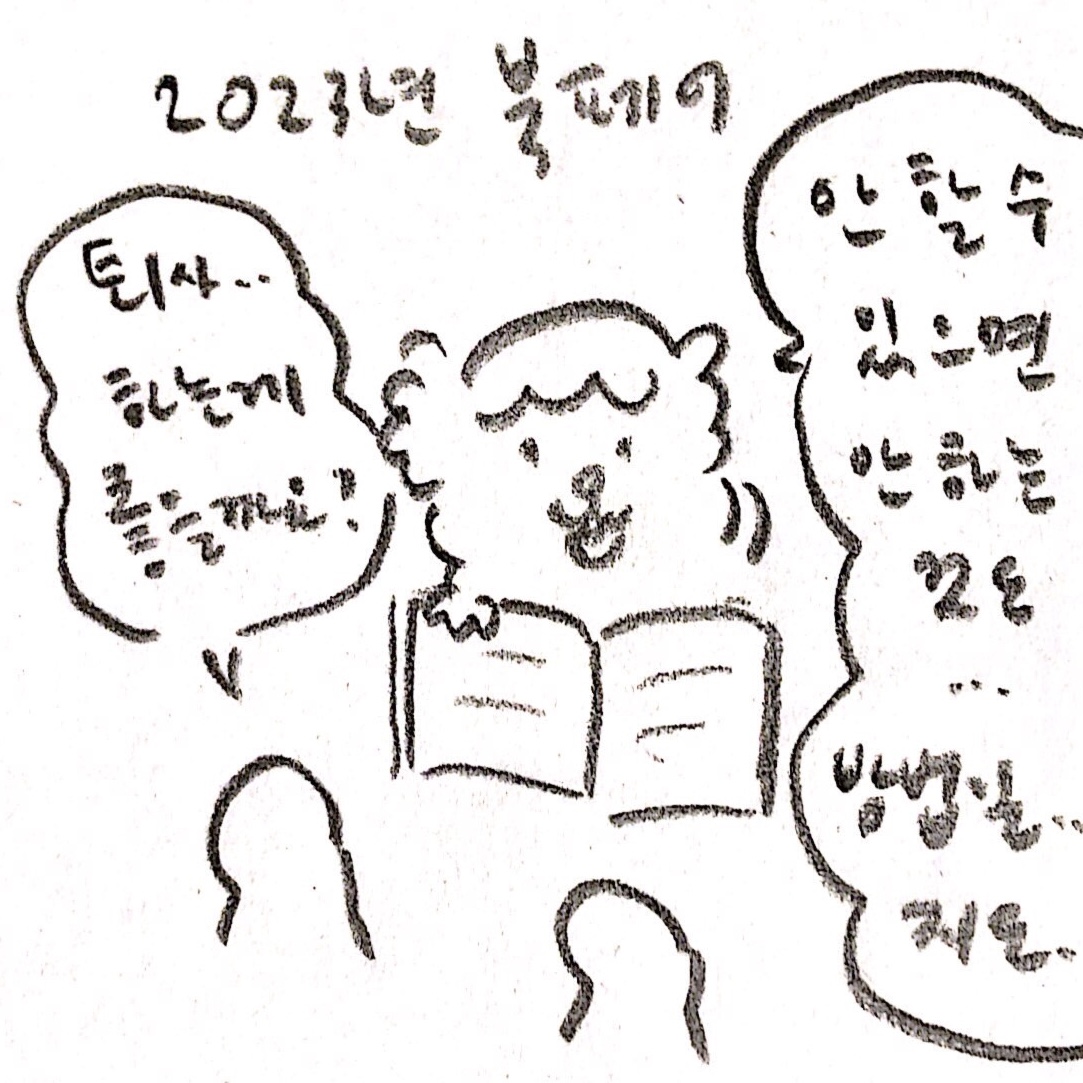 2023년 북페어
퇴사..
하는게
좋을까요?
안 할 수
있으면
안 하는
것도
...
방법일..
지도..